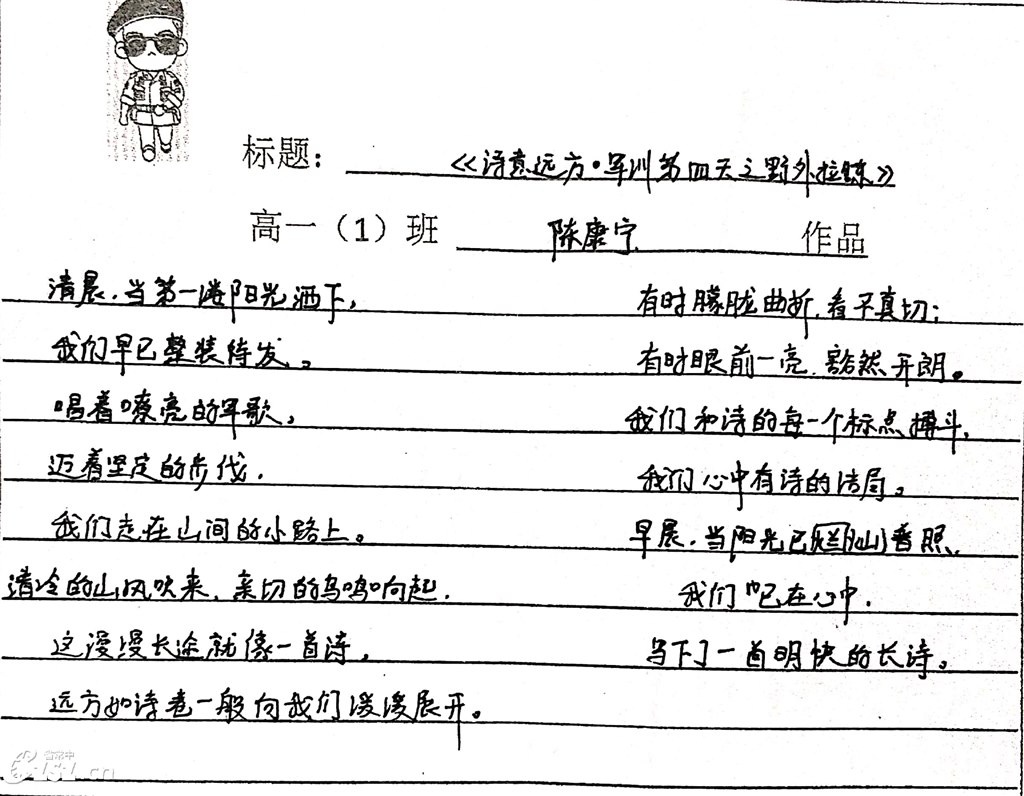 标题：《诗意远方·军训第四天之野外拉练》
高一（1）班 陈康宁 作品
清晨，当第一缕阳光洒下，
我们早已整装待发。
唱着嘹亮的军歌，
迈着坚定的步伐，
我们走在山间的小路上。
清冷的山风吹来，亲切的鸟鸣响起，
这漫漫长途就像一首诗，
远方如诗卷一般向我们缓缓展开。
有时朦胧曲折，看不真切；
有时眼前一亮，豁然开朗。
我们和诗的每一个标点搏斗，
我们心中有诗的结局。
早晨，当阳光已烂灿普照，
我们已在心中，
写下了一首明快的长诗。